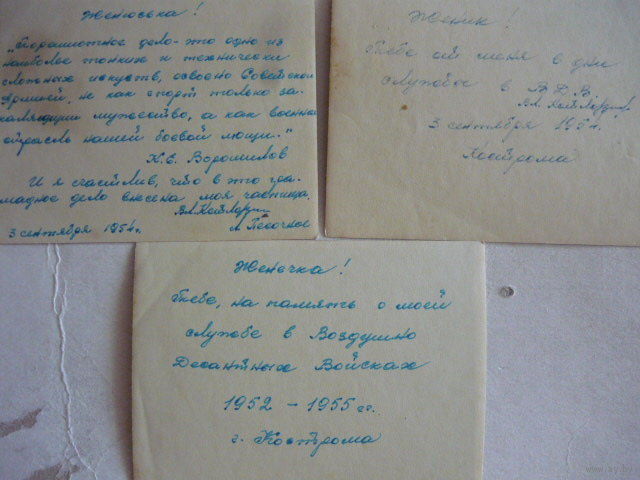 Женюська!
"Парашютное дело - это одно из
наиболее тонких и технически
сложных искуств, освоено Советской
Армией, не как спорт только за-
каляющий мужество, а как военная
отрасль нашей боевой мощи."
К. Е. Ворошилов
И я счастлив, что в это гро-
мадное дело внесена моя частица.
3 сентября 1954г. п. Песочное
Женик!
Тебе от меня в дни
службы в В.Д.В.
3 сентября 1954г.
Кострома
Женечка!
Тебе, на память о моей
службе в Воздушно
Десантных Войсках
1952 - 1955 гг.
г. Кострома